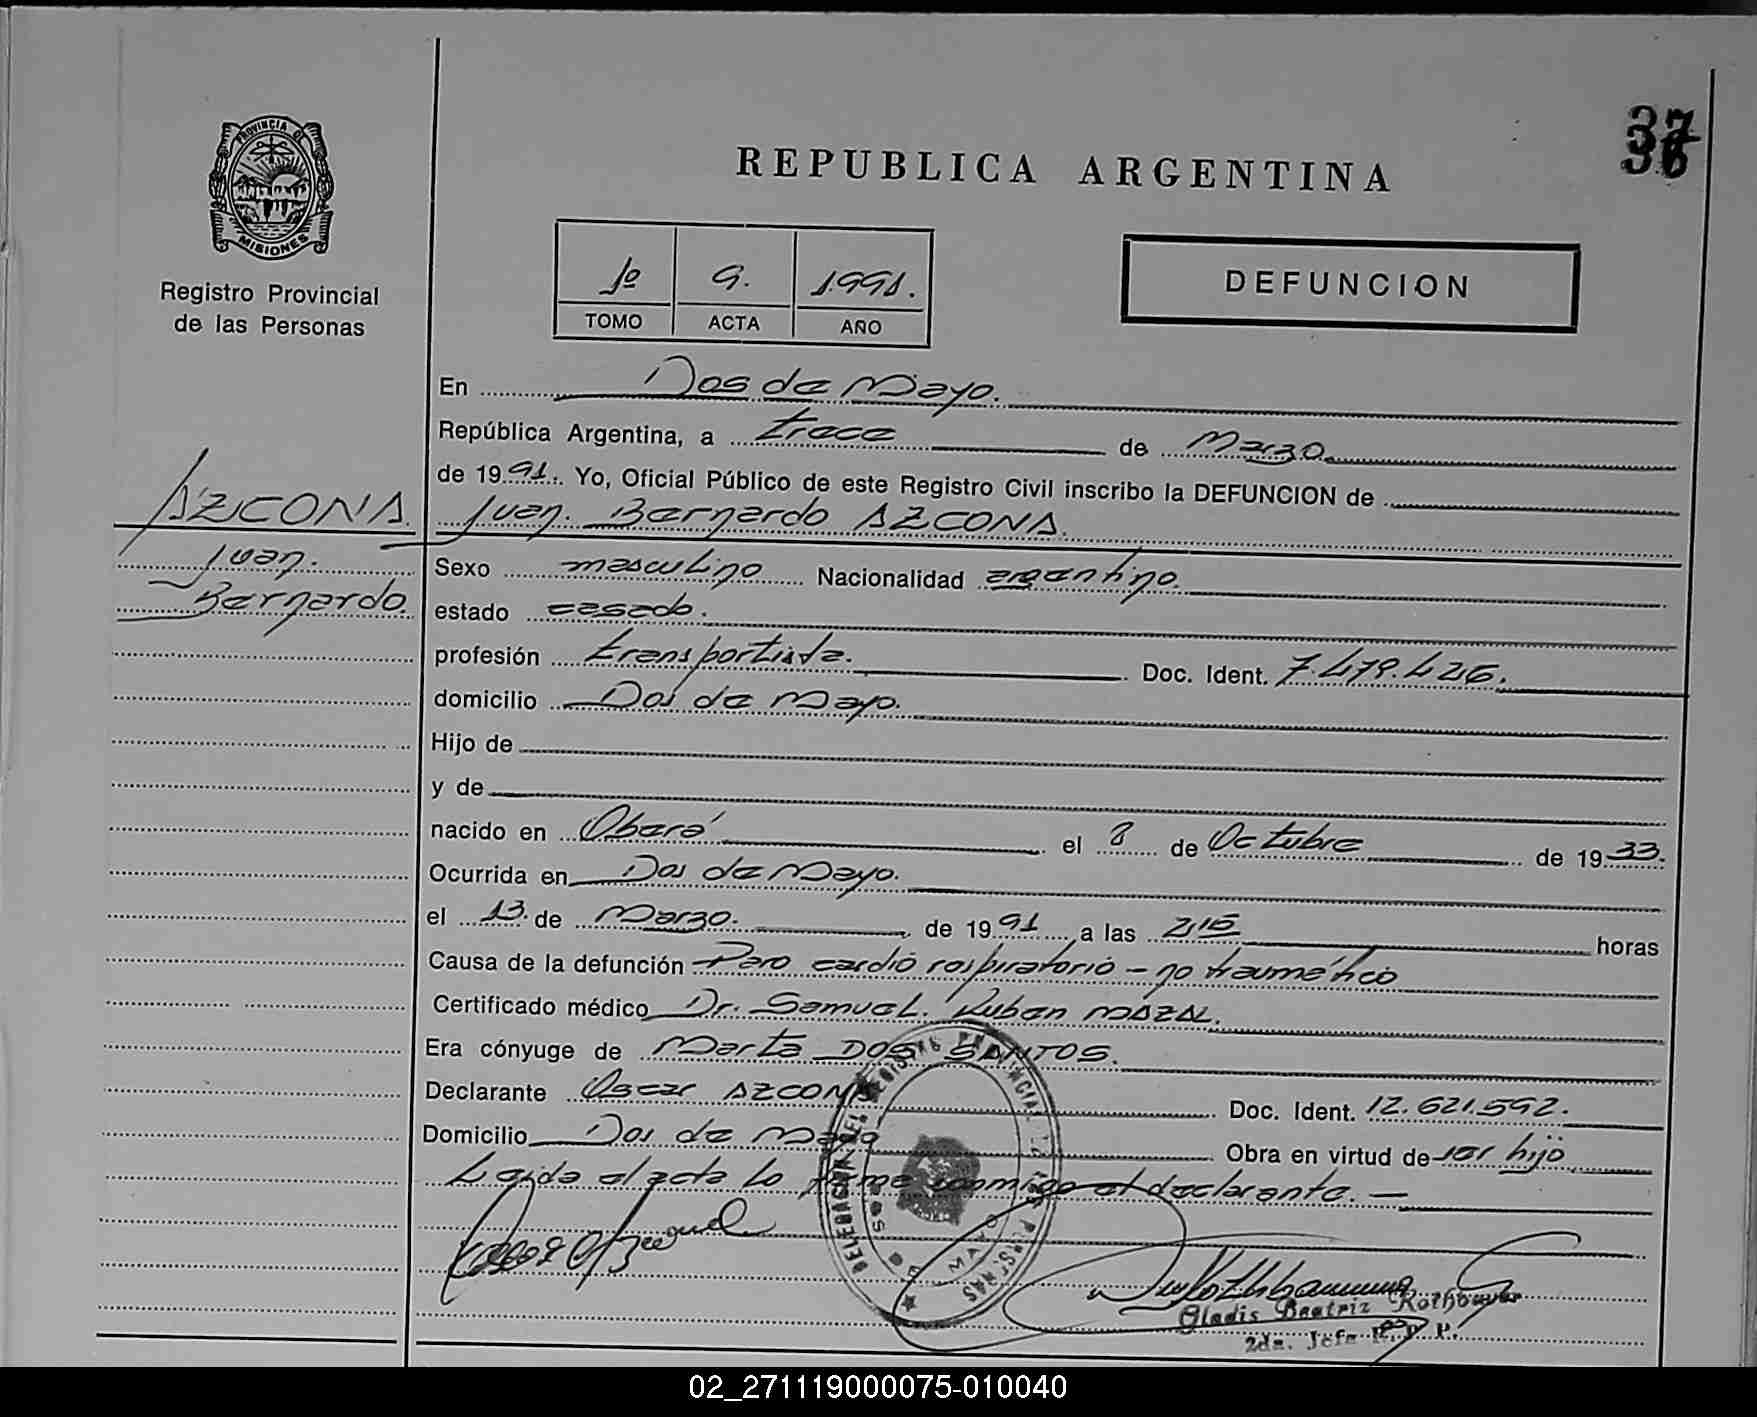 PROVINCIA DE
MISIONES
Registro Provincial
de las Personas
REPUBLICA ARGENTINA
37
1º 9. 1991.
TOMO ACTA AÑO
DEFUNCION
En Dos de Mayo.
República Argentina, a trece de Marzo
de 1991. Yo, Oficial Público de este Registro Civil inscribo la DEFUNCION de
AZCONA Juan. Bernardo AZCONA.
Juan.
Bernardo.
Sexo masculino Nacionalidad argentino.
estado casado.
profesión transportista. Doc. Ident. 7.479.426.
domicilio Dos de Mayo.
Hijo de
y de
nacido en Oberá el 8 de Octubre de 1933.
Ocurrida en Dos de Mayo.
el 13. de Marzo. de 1991 a las 2,15 horas
Causa de la defunción Paro cardio respiratorio - no traumático
Certificado médico Dr. Samuel. Ruben MAZAL.
Era cónyuge de Marta DOS SANTOS.
Declarante Oscar AZCONA Doc. Ident. 12.621.592.
Domicilio Dos de Mayo Obra en virtud de ser hijo
Leída el acta la firma conmigo el declarante. —
DELEGACION DEL REGISTRO PROVINCIAL DE LAS PERSONAS
DOS DE MAYO
Gladis Beatriz Rothbauer
2da. Jefa R. P. P.
02_271119000075-010040